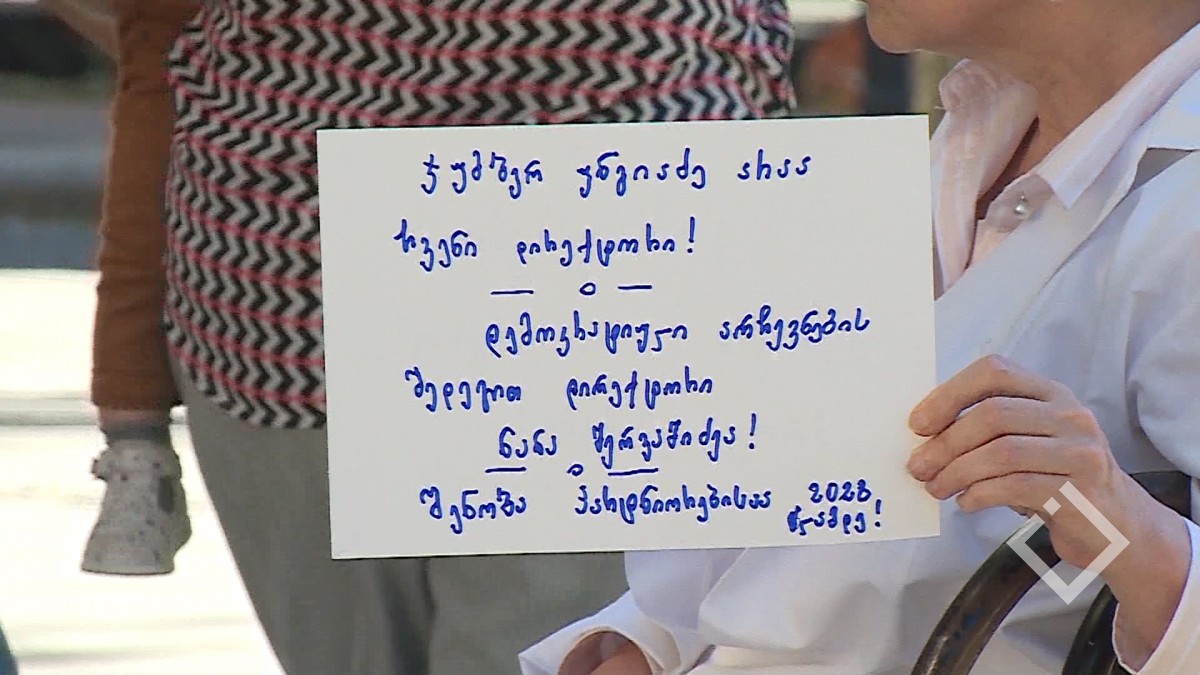 ჯუმბერ უნგიაძე არაა
ჩვენი დირექტორი!
დემოკრატიული არჩევნების
შედეგით დირექტორი
ნანა შერვაშიძეა!
შენობა პარტნიორებისაა 2028
წლამდე!